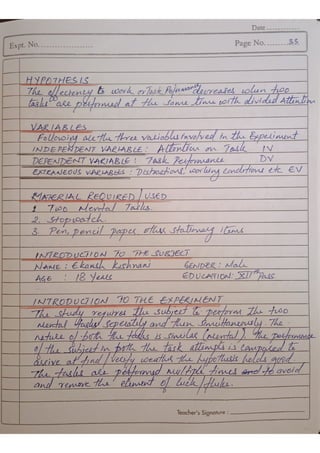 Date
Expt. No.
Page No. 35
HYPOTHESIS
The effeciency to work or Task Performance decreases when two
tasks are performed at the same time with divided Attention
VARIABLES
Following are the three variables involved in the Experiment
INDEPENDENT VARIABLE : Attention on Task IV
DEPENDENT VARIABLE : Task Performance DV
EXTRANEOUS VARIABLES : Distractions' working conditions etc EV
MATERIAL REQUIRED / USED
1 Two Mental Tasks.
2. Stopwatch.
3. Pen, pencil paper other stationary items
INTRODUCTION TO THE SUBJECT
NAME : Ekansh Kishnani GENDER : Male
AGE : 18 Years EDUCATION : XIIth Pass
INTRODUCTION TO THE EXPERIMENT
The study requires the subject to perform the two
mental tasks seperately and then simultaneously The
nature of both the tasks is similar (mental). The performance
of the subject in both the task attempts is compared to
derive at find / verify weather the hypothesis holds good
The tasks are performed multiple times and to avoid
and remove the element of luck / fluke.
Teacher's Signature :